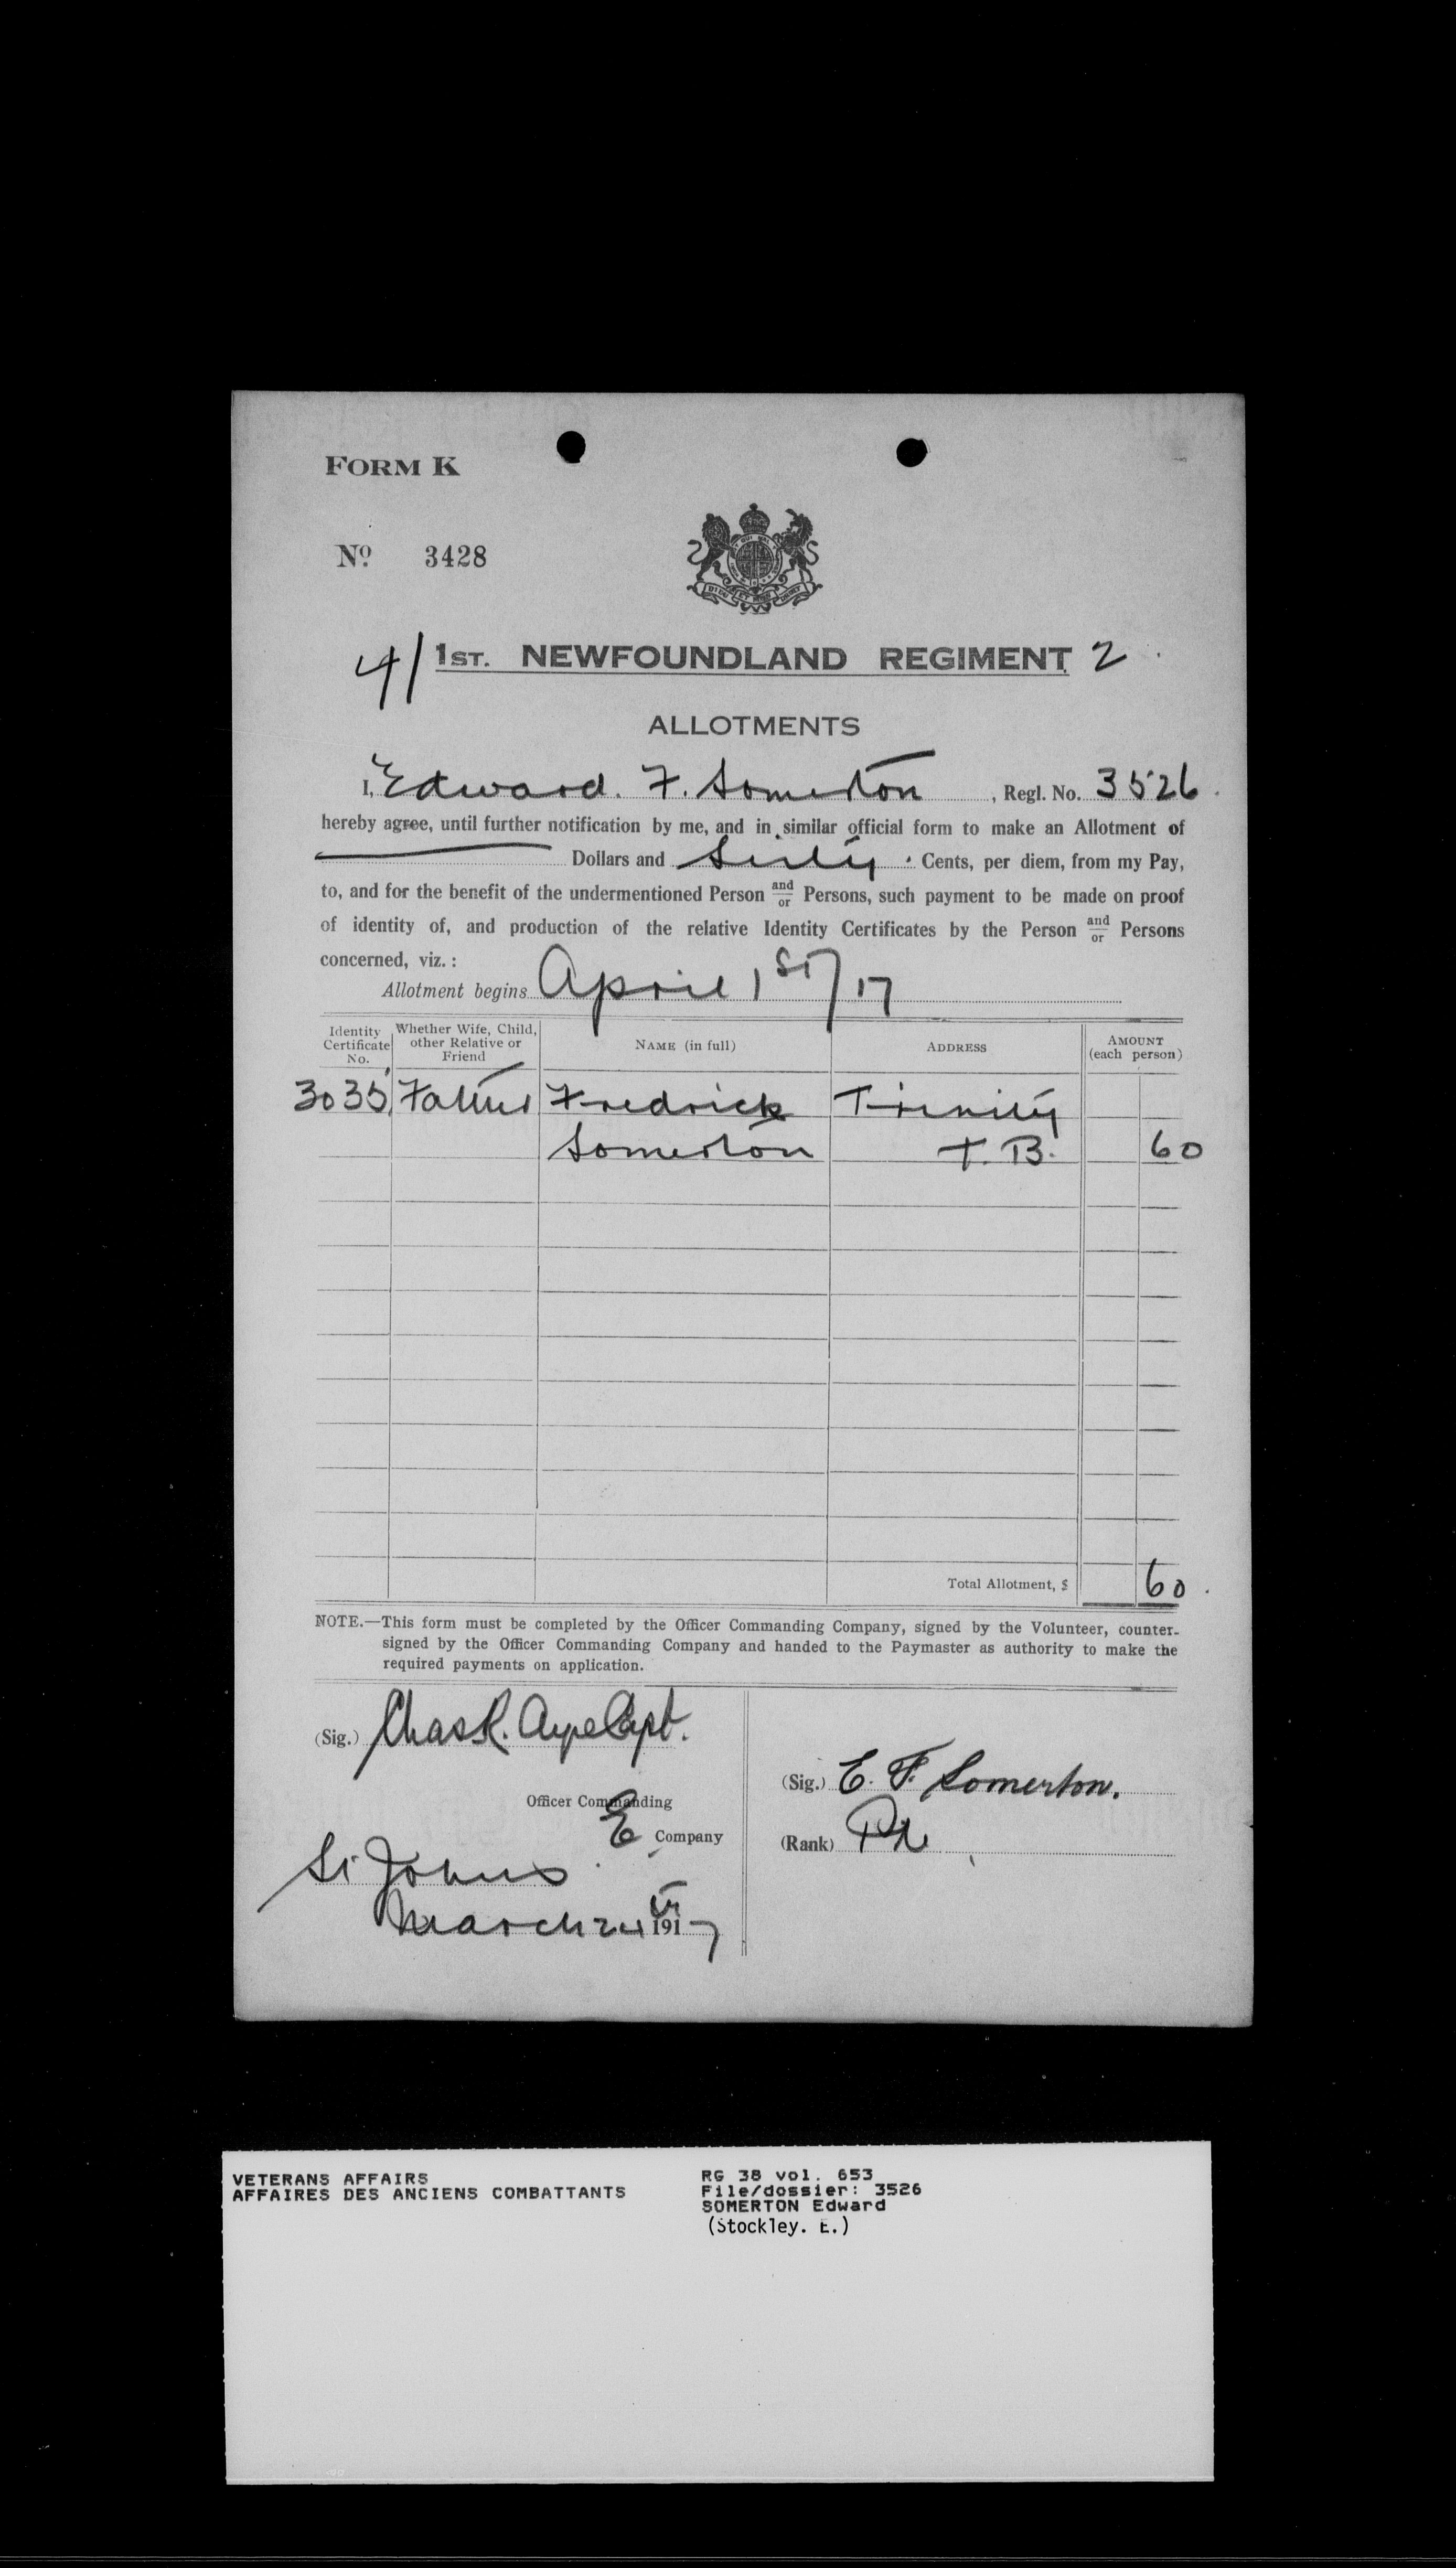 FORM K
Nº 3428
4/ 1ST. NEWFOUNDLAND REGIMENT 2
ALLOTMENTS
I, Edward. F. Somerton, Regl. No. 3526
hereby agree, until further notification by me, and in similar official form to make an Allotment of
Dollars and Sixty Cents, per diem, from my Pay,
to, and for the benefit of the undermentioned Person and/or Persons, such payment to be made on proof
of identity of, and production of the relative Identity Certificates by the Person and/or Persons
concerned, viz. :
Allotment begins April 1st/17
Identity Certificate No. Whether Wife, Child, other Relative or Friend NAME (in full) ADDRESS AMOUNT (each person)
3035 Father Fredrick Trinity
Somerton T. B. 60
Total Allotment, $ 60
NOTE.—This form must be completed by the Officer Commanding Company, signed by the Volunteer, counter-
signed by the Officer Commanding Company and handed to the Paymaster as authority to make the
required payments on application.
(Sig.) Chas R. Ayre Capt.
Officer Commanding
E Company
St Johns
March 24th 1917
(Sig.) E. F. Somerton.
(Rank) Pte
VETERANS AFFAIRS
AFFAIRES DES ANCIENS COMBATTANTS
RG 38 vol. 653
File/dossier: 3526
SOMERTON Edward
(Stockley. E.)